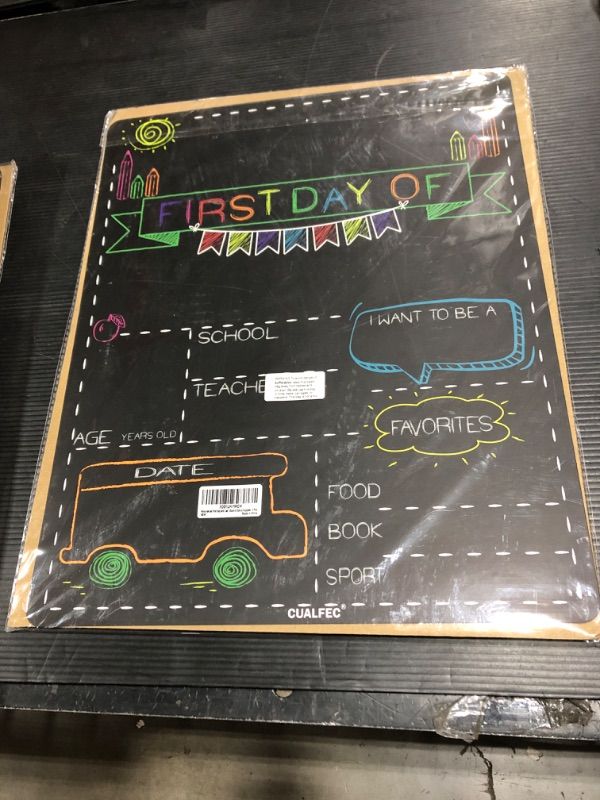 FIRST DAY OF
I WANT TO BE A
SCHOOL
TEACHE
AGE YEARS OLD
FAVORITES
DATE
FOOD
BOOK
SPORT
CUALFEC®